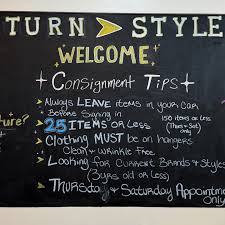 TURN > STYLE
WELCOME
Consignment Tips
Always LEAVE items in your Car
Before Signing in
25 ITEMS or Less
150 items or Less
(Thurs + Sat)
Only
Clothing MUST be on hangers
Clean & Wrinkle Free
Looking for Current Brands & Styles
(3yrs old or less)
Thursday & Saturday Appointme
Only
ure?